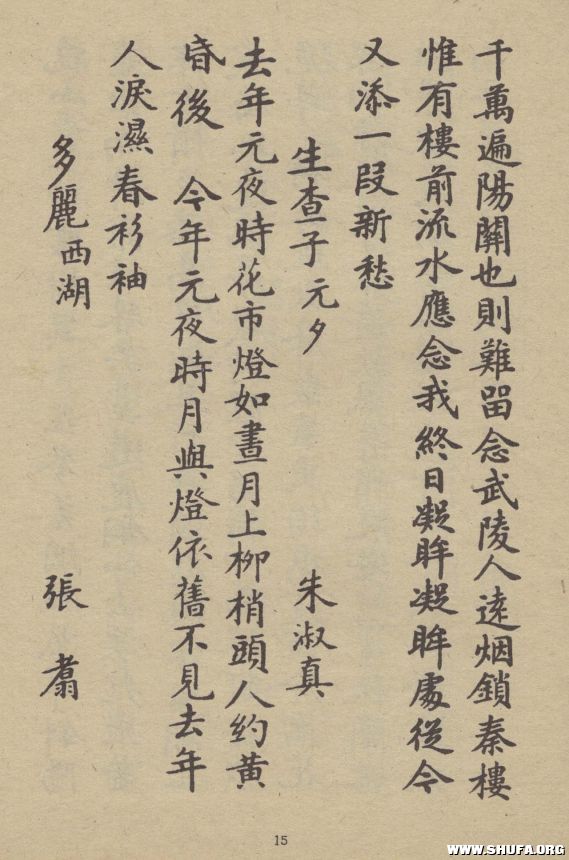 千萬遍陽關也則難留念武陵人遠烟鎖秦樓
惟有樓前流水應念我終日凝眸凝眸處從今
又添一段新愁
生查子元夕 朱淑真
去年元夜時花市燈如晝月上柳梢頭人約黃
昏後 今年元夜時月與燈依舊不見去年
人淚濕春衫袖
多麗西湖 張翥
15
WWW.SHUFA.ORG